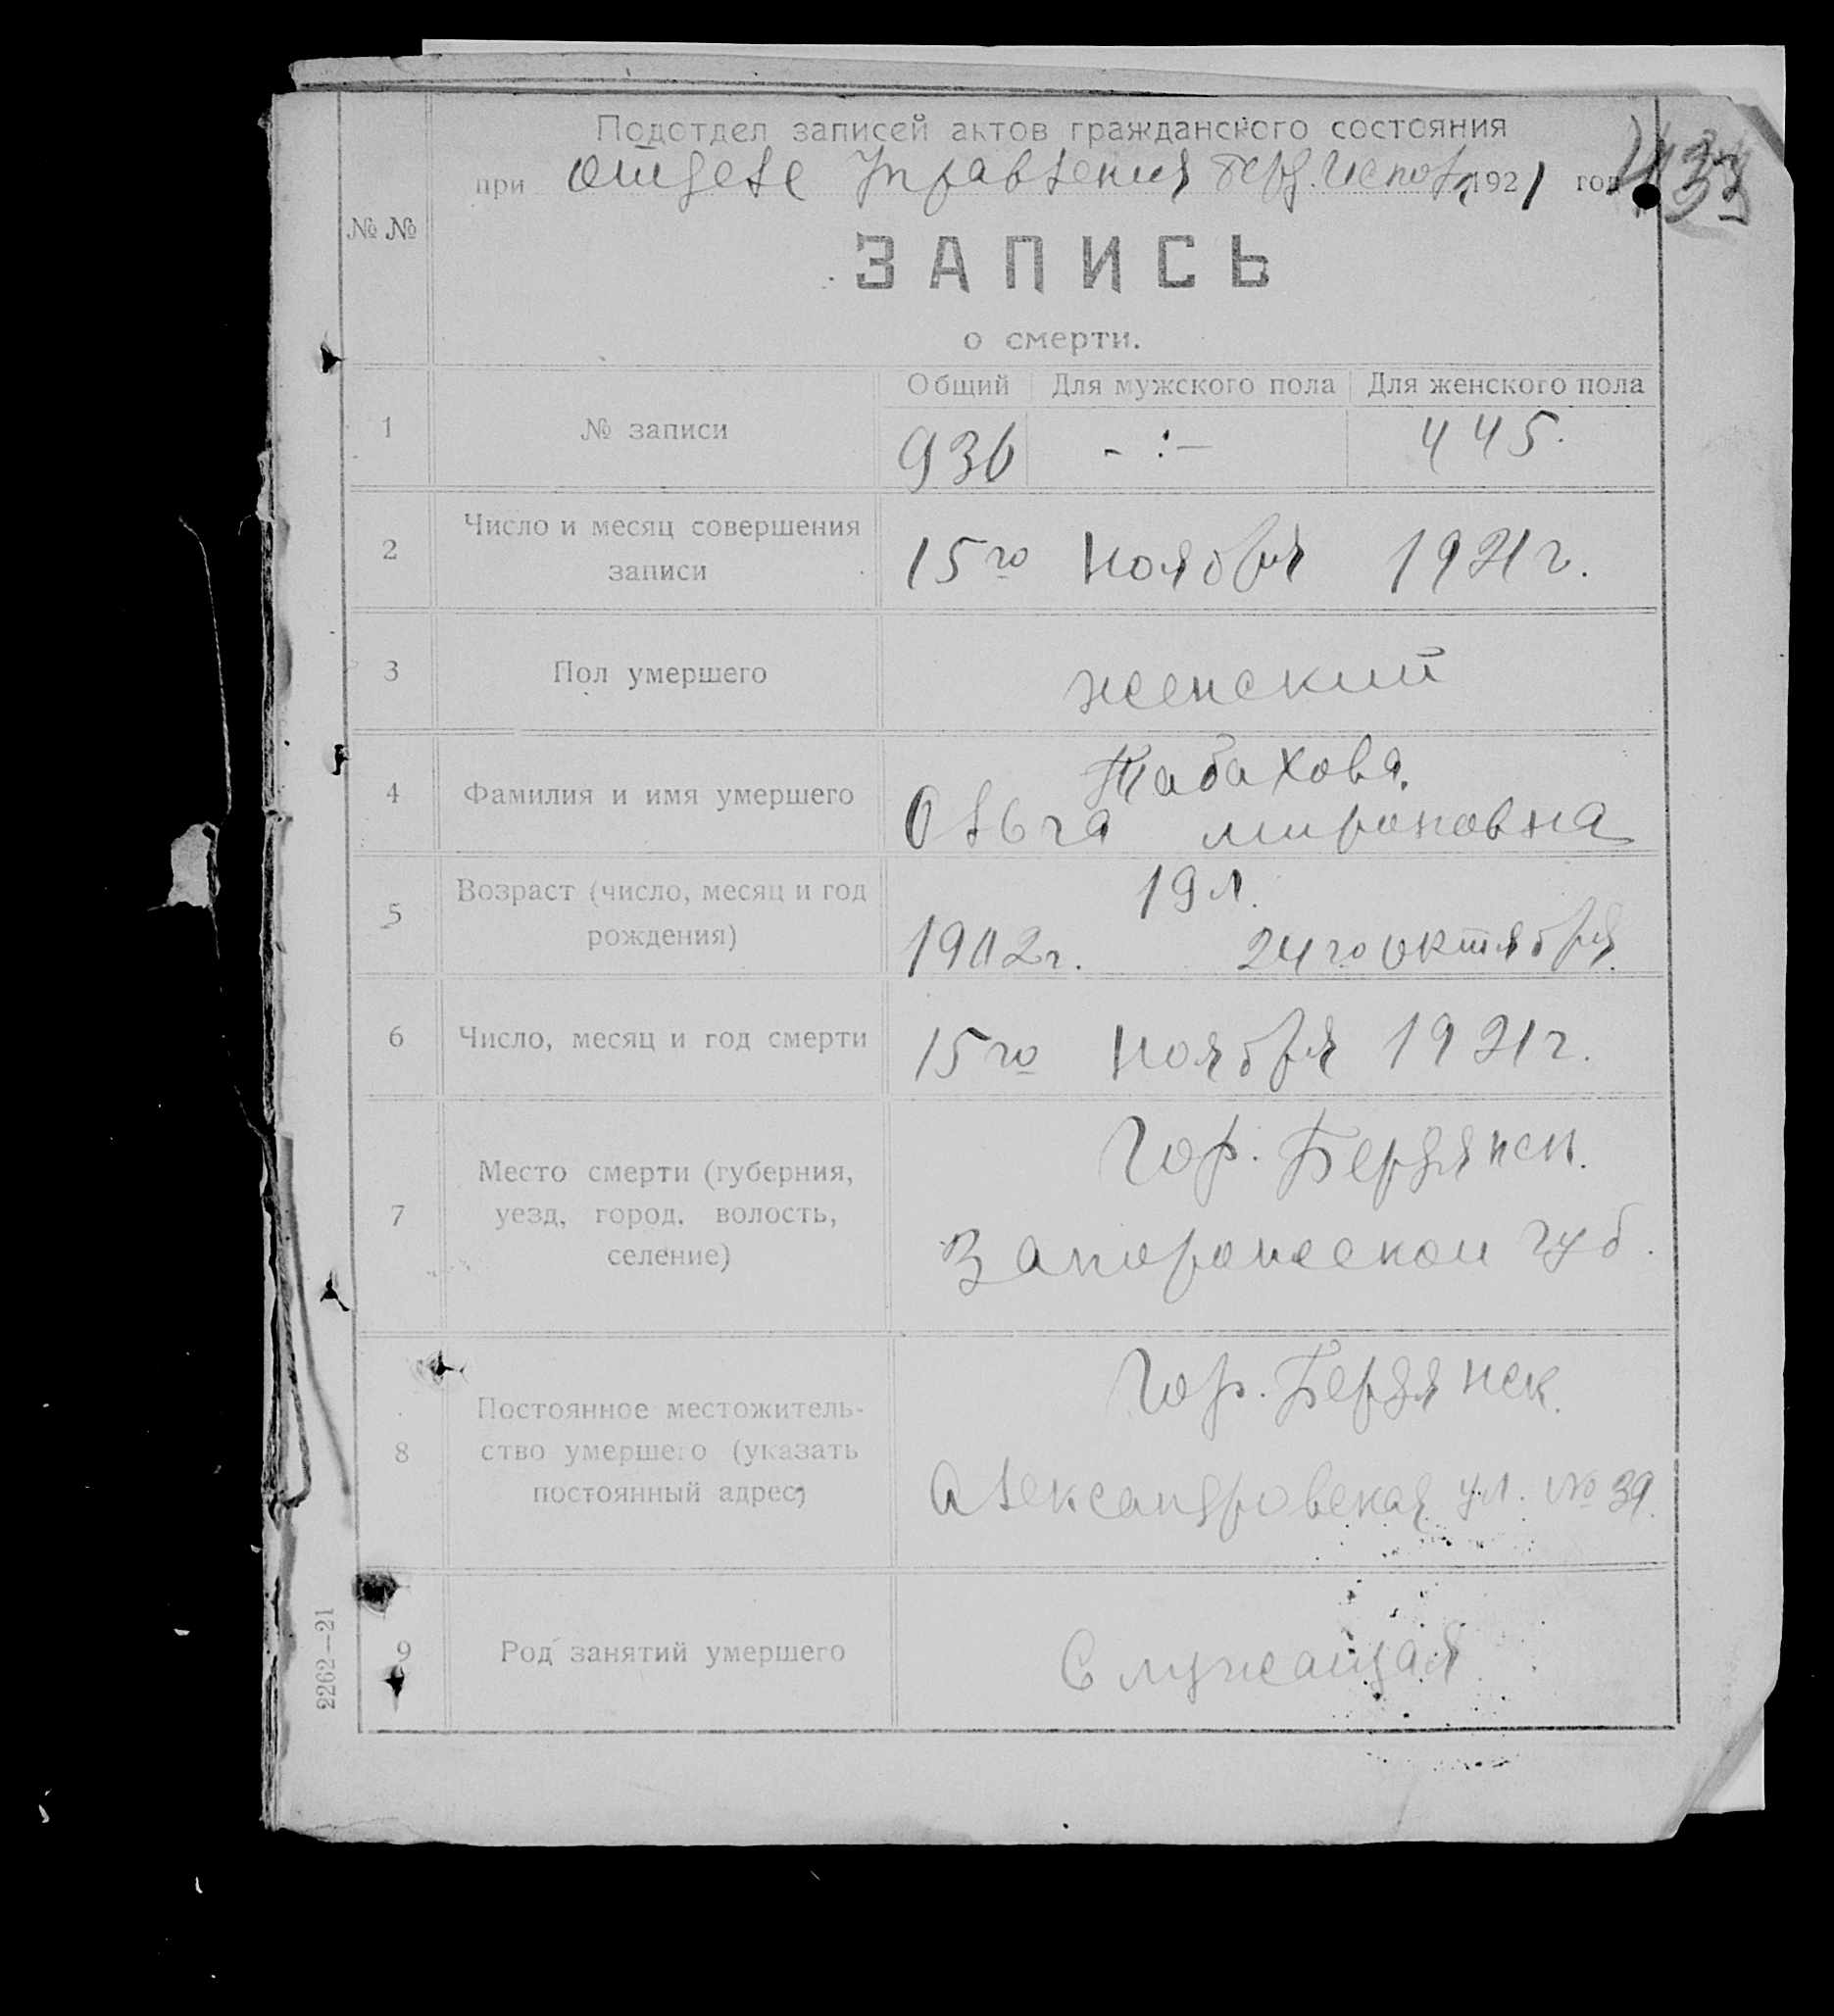 Подотдел записей актов гражданского состояния
при отделе Управления Берд. Испол. 1921 год
№ №
ЗАПИСЬ
о смерти.
Общий Для мужского пола Для женского пола
1 № записи 936 - :- 445.
2 Число и месяц совершения записи 15го Ноября 1921 г.
3 Пол умершего женский
4 Фамилия и имя умершего Табахова.
Ольга мироновна
5 Возраст (число, месяц и год рождения) 19 л.
1902 г. 24го октября.
6 Число, месяц и год смерти 15го Ноября 1921 г.
7 Место смерти (губерния, уезд, город, волость, селение) Гор. Бердянск.
Запорожской губ.
8 Постоянное местожитель-
ство умершего (указать постоянный адрес) Гор. Бердянск.
Александровская ул. № 39.
9 Род занятий умершего Служащая
2262-21